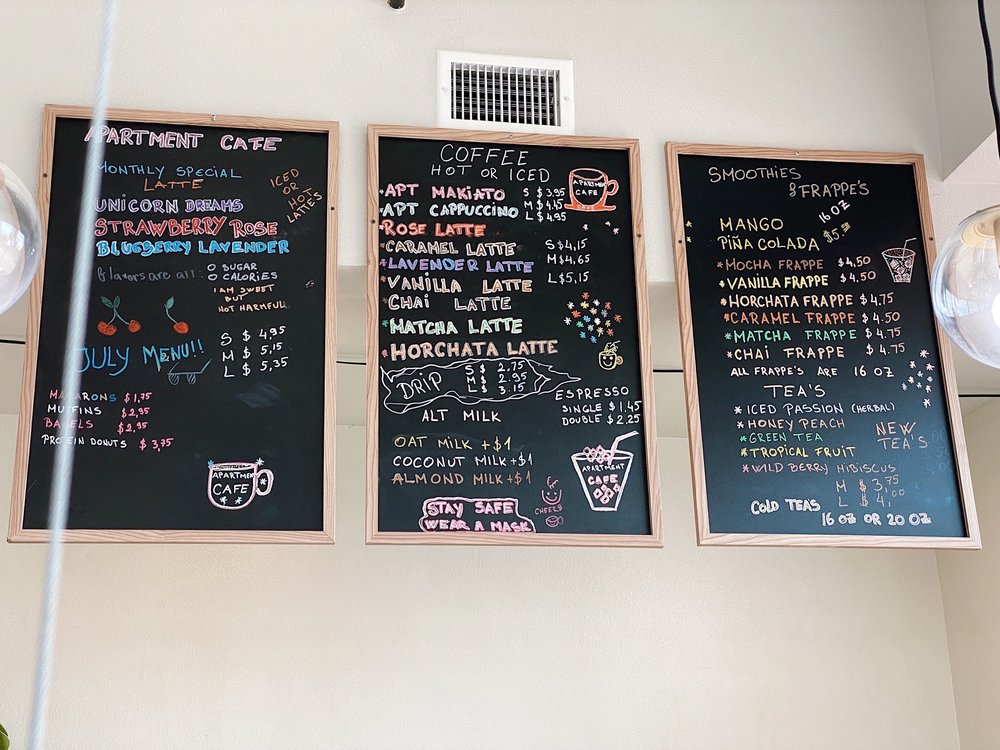 APARTMENT CAFE
MONTHLY SPECIAL
LATTE
ICED
OR
HOT
LATTE'S
UNICORN DREAMS
STRAWBERRY ROSE
BLUEBERRY LAVENDER
flavors are all: 0 SUGAR
0 CALORIES
I AM SWEET
BUT
NOT HARMFUL
JULY MENU!!
S $ 4,95
M $ 5,15
L $ 5,35
MACARONS $1,75
MUFFINS $2,95
BAGELS $2,95
PROTEIN DONUTS $3,75
APARTMENT
CAFE
COFFEE
HOT OR ICED
*APT MAKIATO S $3,95
*APT CAPPUCCINO M $4.45
L $4,95
APARTMENT
CAFE
*ROSE LATTE
*CARAMEL LATTE S $4,15
*LAVENDER LATTE M $4,65
*VANILLA LATTE L $5,15
*CHAI LATTE
*MATCHA LATTE
*HORCHATA LATTE
DRIP S $ 2.75
M $ 2.95
L $ 3,15
ESPRESSO
SINGLE $1.45
DOUBLE $2.25
ALT MILK
OAT MILK +$1
COCONUT MILK +$1
ALMOND MILK +$1
APARTMENT
CAFE
STAY SAFE
WEAR A MASK
CHEERS
SMOOTHIES
& FRAPPE'S
16 OZ
MANGO
PIÑA COLADA
*MOCHA FRAPPE $4,50
*VANILLA FRAPPE $4,50
*HORCHATA FRAPPE $4.75
*CARAMEL FRAPPE $4.50
*MATCHA FRAPPE $4.75
*CHAI FRAPPE $4.75
ALL FRAPPE'S ARE 16 OZ
TEA'S
*ICED PASSION (HERBAL)
*HONEY PEACH
*GREEN TEA
*TROPICAL FRUIT
*WILD BERRY HIBISCUS
NEW
TEA'S
COLD TEAS M $3,75
L $4,00
16 OZ OR 20 OZ